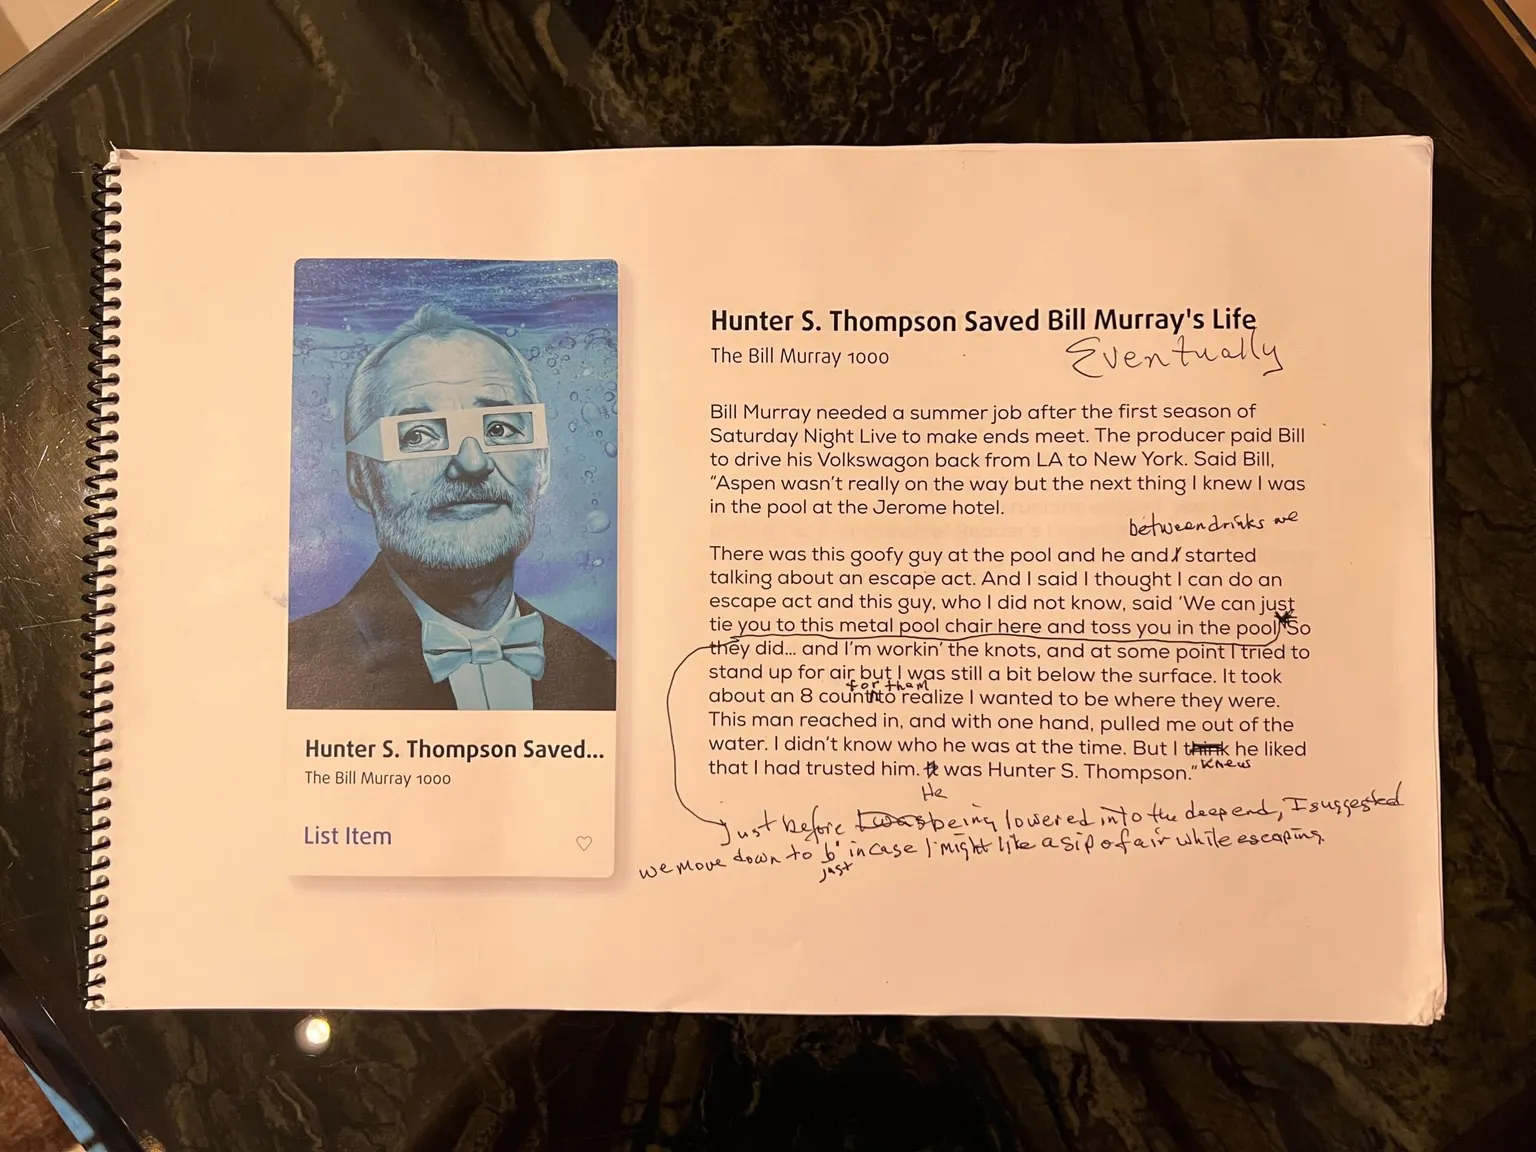 Hunter S. Thompson Saved Bill Murray's Life
The Bill Murray 1000
Eventually
Bill Murray needed a summer job after the first season of
Saturday Night Live to make ends meet. The producer paid Bill
to drive his Volkswagon back from LA to New York. Said Bill,
"Aspen wasn't really on the way but the next thing I knew I was
in the pool at the Jerome hotel.
between drinks we
There was this goofy guy at the pool and he and I started
talking about an escape act. And I said I thought I can do an
escape act and this guy, who I did not know, said 'We can just
tie you to this metal pool chair here and toss you in the pool' So
they did... and I'm workin' the knots, and at some point I tried to
stand up for air but I was still a bit below the surface. It took
for them
about an 8 count to realize I wanted to be where they were.
This man reached in, and with one hand, pulled me out of the
water. I didn't know who he was at the time. But I think he liked
knew
that I had trusted him. It was Hunter S. Thompson."
He
Just before I was being lowered into the deep end, I suggested
we move down to 6' in case I might like a sip of air while escaping.
just
Hunter S. Thompson Saved...
The Bill Murray 1000
List Item